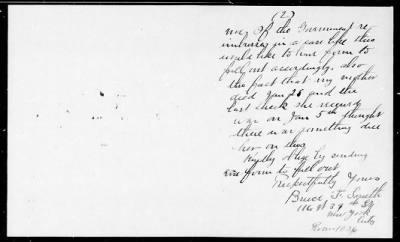 (2)
ing of the Government re
imbursing in a case like this
would like to have form to
fill out accordingly. also
the fact that my mother
died Jan 26 and the
last check she received
was on Jan 5th thought
there was something due
her on this
Kindly oblige by sending
me form to fill out
Respectfully Yours
Bruce F. Smith
116 W 39th St
New York
City
Room 1036